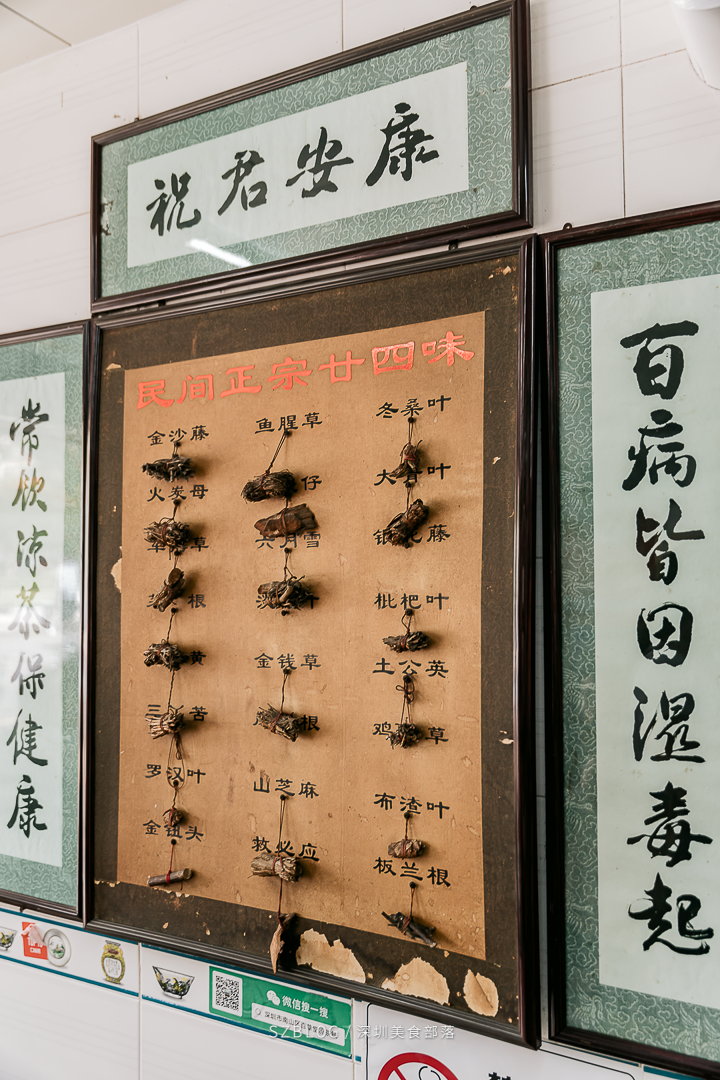 祝君安康
百病皆因湿毒起
常饮凉茶保健康
民间正宗廿四味
金沙藤
鱼腥草
冬桑叶
火炭母
仔
大 叶
草
六月雪
银 藤
根
枇杷叶
黄
金钱草
土公英
苦
根
鸡 草
罗汉叶
山芝麻
布渣叶
金钮头
救必应
板兰根
微信搜一搜
深圳市南山区百草堂
SZBLOG / 深圳美食部落